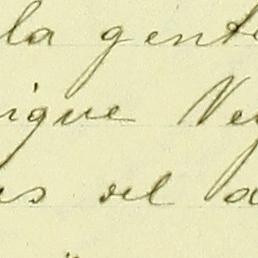 la gente
igue Ve
s del d